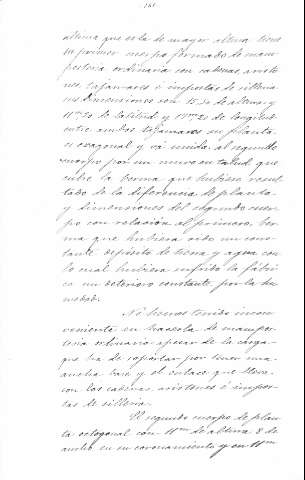 altura que es la de mayor altura tiene
su primer cuerpo formado de mam-
posteria ordinaria con cadenas, aristo-
nes, tajamares é impostas de silleria
sus dimensiones son 15.50 de altura y
11ms20 de latitud y 17ms20 de longitud
entre ambos tajamares su planta
es exagonal y vá unida al segundo
cuerpo por un nuevo talud que
cubre la berma que hubiera resul-
tado de la diferencia de planta
y dimensiones del segundo cuer-
po con relacion al primero, ber-
ma que hubiera sido un cons-
tante depósito de tierra y agua con
lo cual hubiera sufrido la fábri-
ca un deterioro constante por la hu-
medad.
No hemos tenido incon-
veniente en hacerla de mampos-
teria ordinaria apesar de la carga
que ha de soportar por tener una
ancha base y el enlace que lleva
con las cadenas, aristones é impos-
tas de silleria.
El segundo cuerpo de plan-
ta octogonal con 11ms de altura 8 de
ancho en su coronamiento y en 11ms